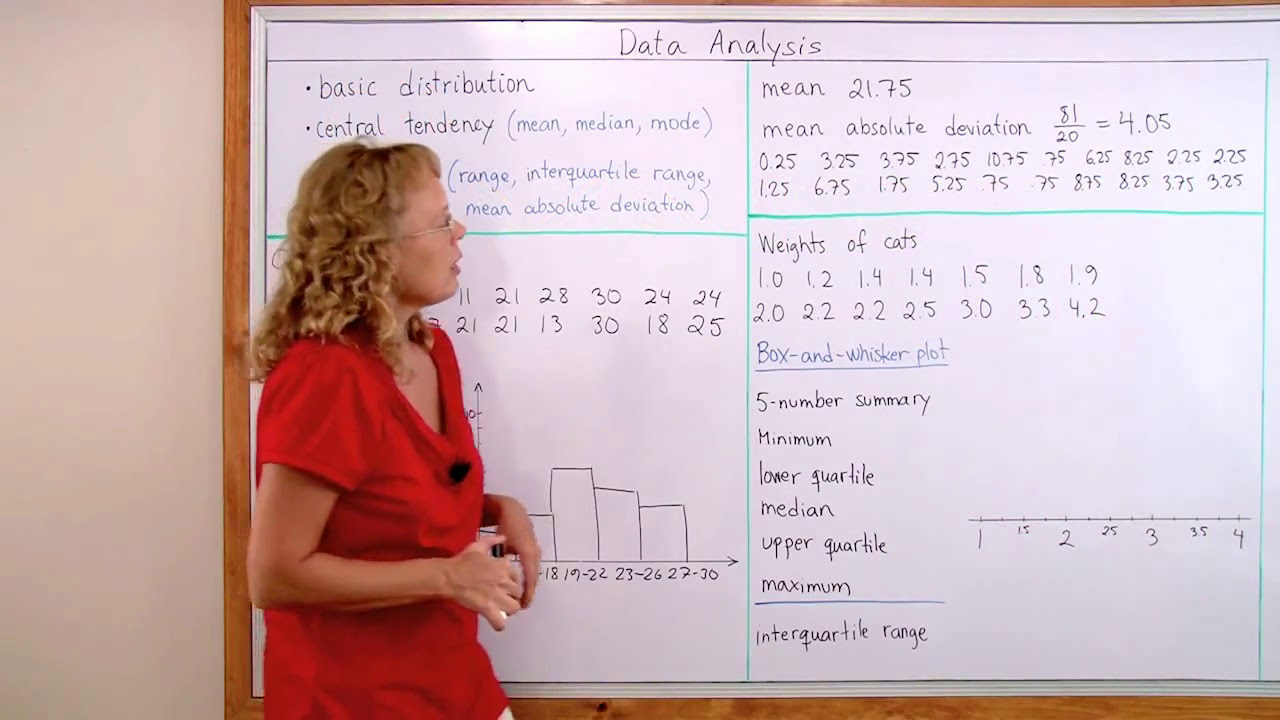 Data Analysis
• basic distribution
• central tendency (mean, median, mode)
(range, interquartile range,
mean absolute deviation)
11 21 28 30 24 24
21 21 13 30 18 25
18 19-22 23-26 27-30
mean 21.75
mean absolute deviation 81/20 = 4.05
0.25 3.25 3.75 2.75 10.75 .75 6.25 8.25 2.25 2.25
1.25 6.75 1.75 5.25 .75 .75 8.75 8.25 3.75 3.25
Weights of cats
1.0 1.2 1.4 1.4 1.5 1.8 1.9
2.0 2.2 2.2 2.5 3.0 3.3 4.2
Box-and-whisker plot
5-number summary
Minimum
lower quartile
median
upper quartile
maximum
interquartile range
1 1.5 2 2.5 3 3.5 4